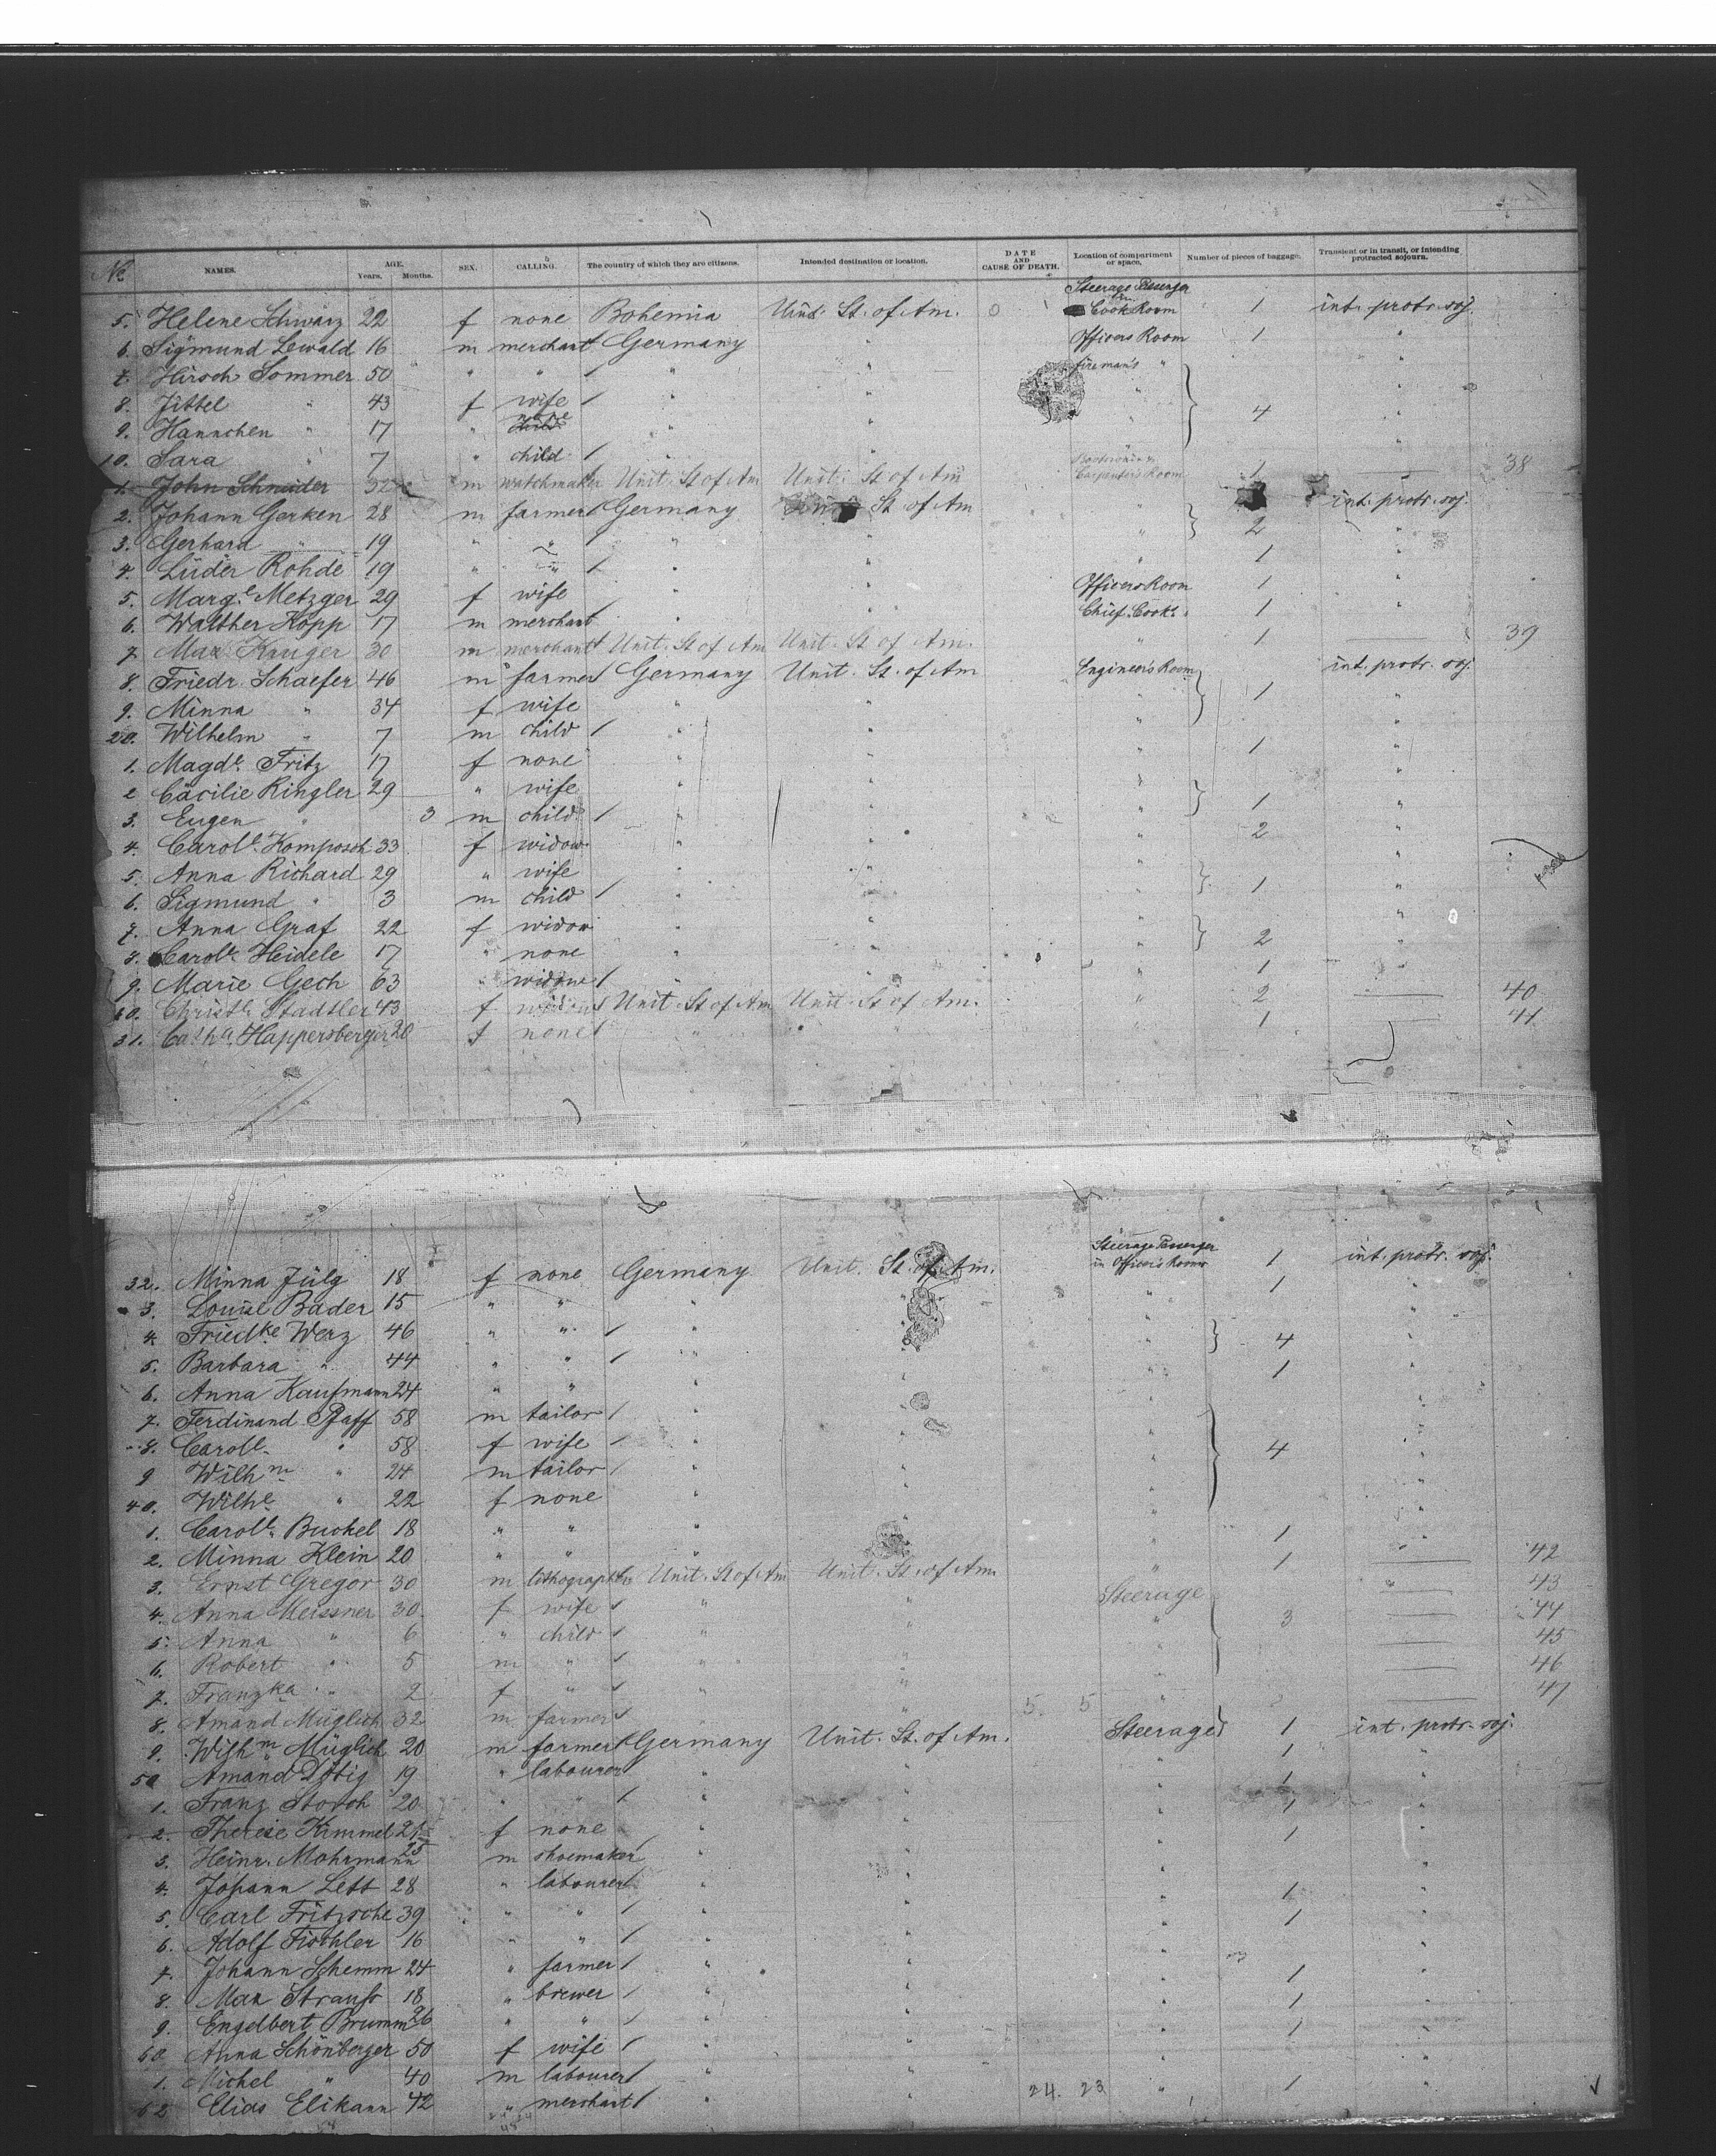 No. NAMES. AGE. Years. Months. SEX. CALLING. The country of which they are citizens. Intended destination or location. DATE AND CAUSE OF DEATH. Location of compartment or space. Number of pieces of baggage. Transient or in transit, or intending protracted sojourn.
5. Helene Schwarz 22 f none Bohemia Unit. St. of Am. Steerage Passenger in Cook Room 1 int. protr. soj.
6. Sigmund Lewald 16 m merchant Germany " Officers Room 1 "
7. Hirsch Sommer 50 " " " " fireman's " "
8. Jittel " 43 f wife " " " 4 "
9. Hannchen " 17 " none " " " "
10. Sara " 7 " child " "
1. John Schneider 32 m watchmaker Unit. St of Am Unit. St of Am Carpenter's Room 1 38
2. Johann Gerken 28 m farmer Germany St. of Am " int. protr. soj.
3. Gerhard " 19 " " " " " 2 "
4. Lüder Rohde 19 " " " " " 1 "
5. Marg.e Metzger 29 f wife " " Officers Room 1 "
6. Walther Kopp 17 m merchant " " Chief Cook's " 1 "
7. Max Kruger 30 m merchant Unit. St of Am Unit. St of Am. " 1 39
8. Friedr. Schaefer 46 m farmer Germany Unit. St. of Am Engineer's Room int. protr. soj.
9. Minna " 34 f wife " " " 1 "
20. Wilhelm " 7 m child " " " "
1. Magd.e Fritz 17 f none " " " 1 "
2 Cäcilie Ringler 29 " wife " " " "
3. Eugen " 3 m child " " " 1 "
4. Carol.e Komposch 33 f widow " " " 2 "
5. Anna Richard 29 " wife " " " "
6. Sigmund " 3 m child " " " 1 "
7. Anna Graf 22 f widow " " " "
8. Carol.e Heidele 17 " none " " " 2 "
9. Marie Gech 63 " widow " " " 1 "
Christ.e Stadtler 43 f Unit. St of Am Unit. St of Am. " 2 40
31. Cath.a Happersberger 20 f none " " " 1 41
32. Minna Jülg 18 f none Germany Unit. St. of Am. Steerage Passenger in Officer's Room 1 int. protr. soj.
3. Louise Bader 15 " " " " " 1 "
4. Fried.ke Werz 46 " " " " " "
5. Barbara " 44 " " " " " 4 "
6. Anna Kaufmann 24 " " " " " 1 "
7. Ferdinand Pfaff 58 m tailor " " "
8. Carol.e " 58 f wife " " " 4 "
9 Wilh.m " 24 m tailor " " " "
40. Wilh.e " 22 f none " " " "
1. Carol.e Buckel 18 " " " " " 1 "
2. Minna Klein 20 " " " " " 1 "
3. Ernst Gregor 30 m lithographer Unit. St of Am Unit. St. of Am. " 1 42
4. Anna Meissner 30 f wife " " Steerage 43
5. Anna " 6 " child " " " 3 44
6. Robert " 5 m " " " " 45
7. Franz.ka " 2 f " " " " 46
8. Amand Müglich 32 m farmer " " 5. 5 " 47
9. Wilh.m Müglich 20 m farmer Germany Unit. St. of Am. Steerage 1 int. protr. soj.
50 Amand 19 " labourer " " " 1 "
1. Franz Storch 20 " " " " " 1 "
2. Therese Kimmel 21 f none " " " 1 "
3. Heinr. Mohrmann 25 m shoemaker " " " 1 "
4. Johann Lett 28 " labourer " " "
5. Carl Fritzsche 39 " " " " " 1 "
6. Adolf Fischler 16 " " " " " 1 "
7. Johann Schemm 24 " farmer " " "
8. Max Strauss 18 " brewer " " " 1 "
9. Engelbert Brumm 26 " " " " " 1 "
60 Anna Schönberger 50 f wife " " " 1 "
1. Michel " 40 m labourer " " "
62 Elias Elikann 42 " merchant " " 24. 23 " 1 "